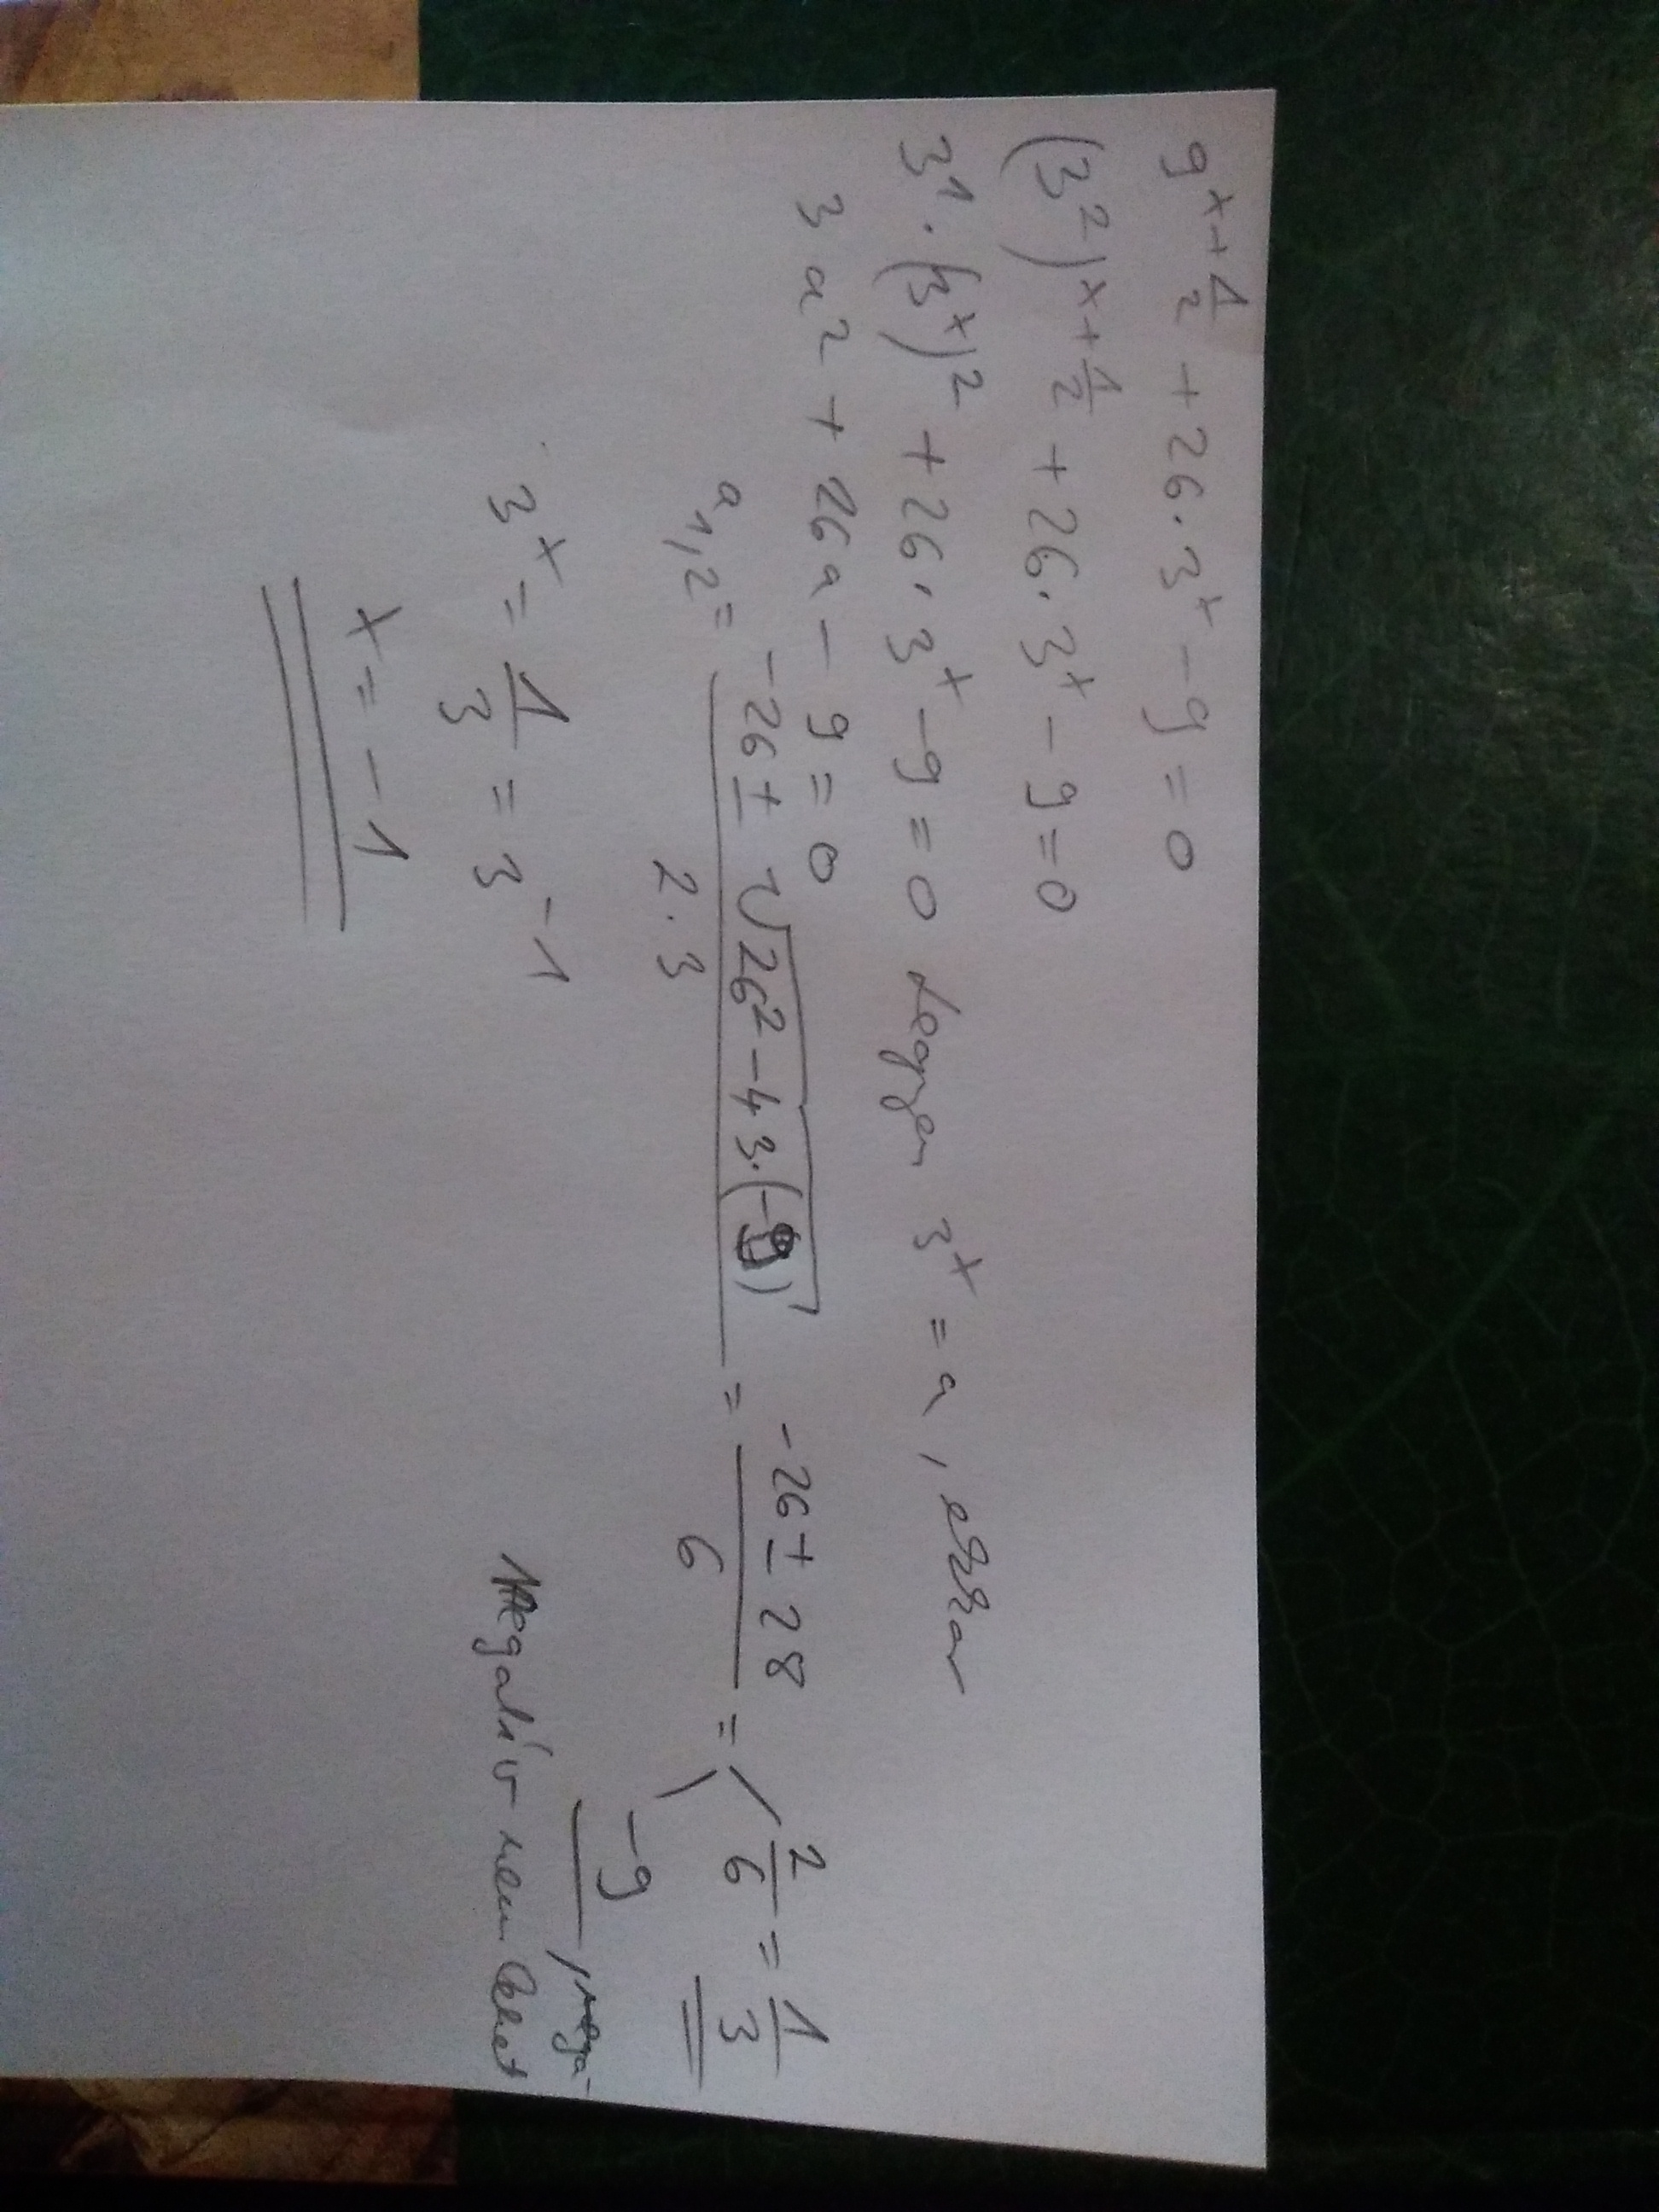 9^(x+1/2) + 26·3^x - 9 = 0
(3²)^(x+1/2) + 26·3^x - 9 = 0
3¹·(3^x)² + 26·3^x - 9 = 0 legyen 3^x = a, ekkor
3a² + 26a - 9 = 0
a₁,₂ = (-26 ± √(26² - 4·3·(-9))) / (2·3) = (-26 ± 28) / 6 = 2/6 = 1/3
-9
3^x = 1/3 = 3^-1
Negatív nem lehet
x = -1